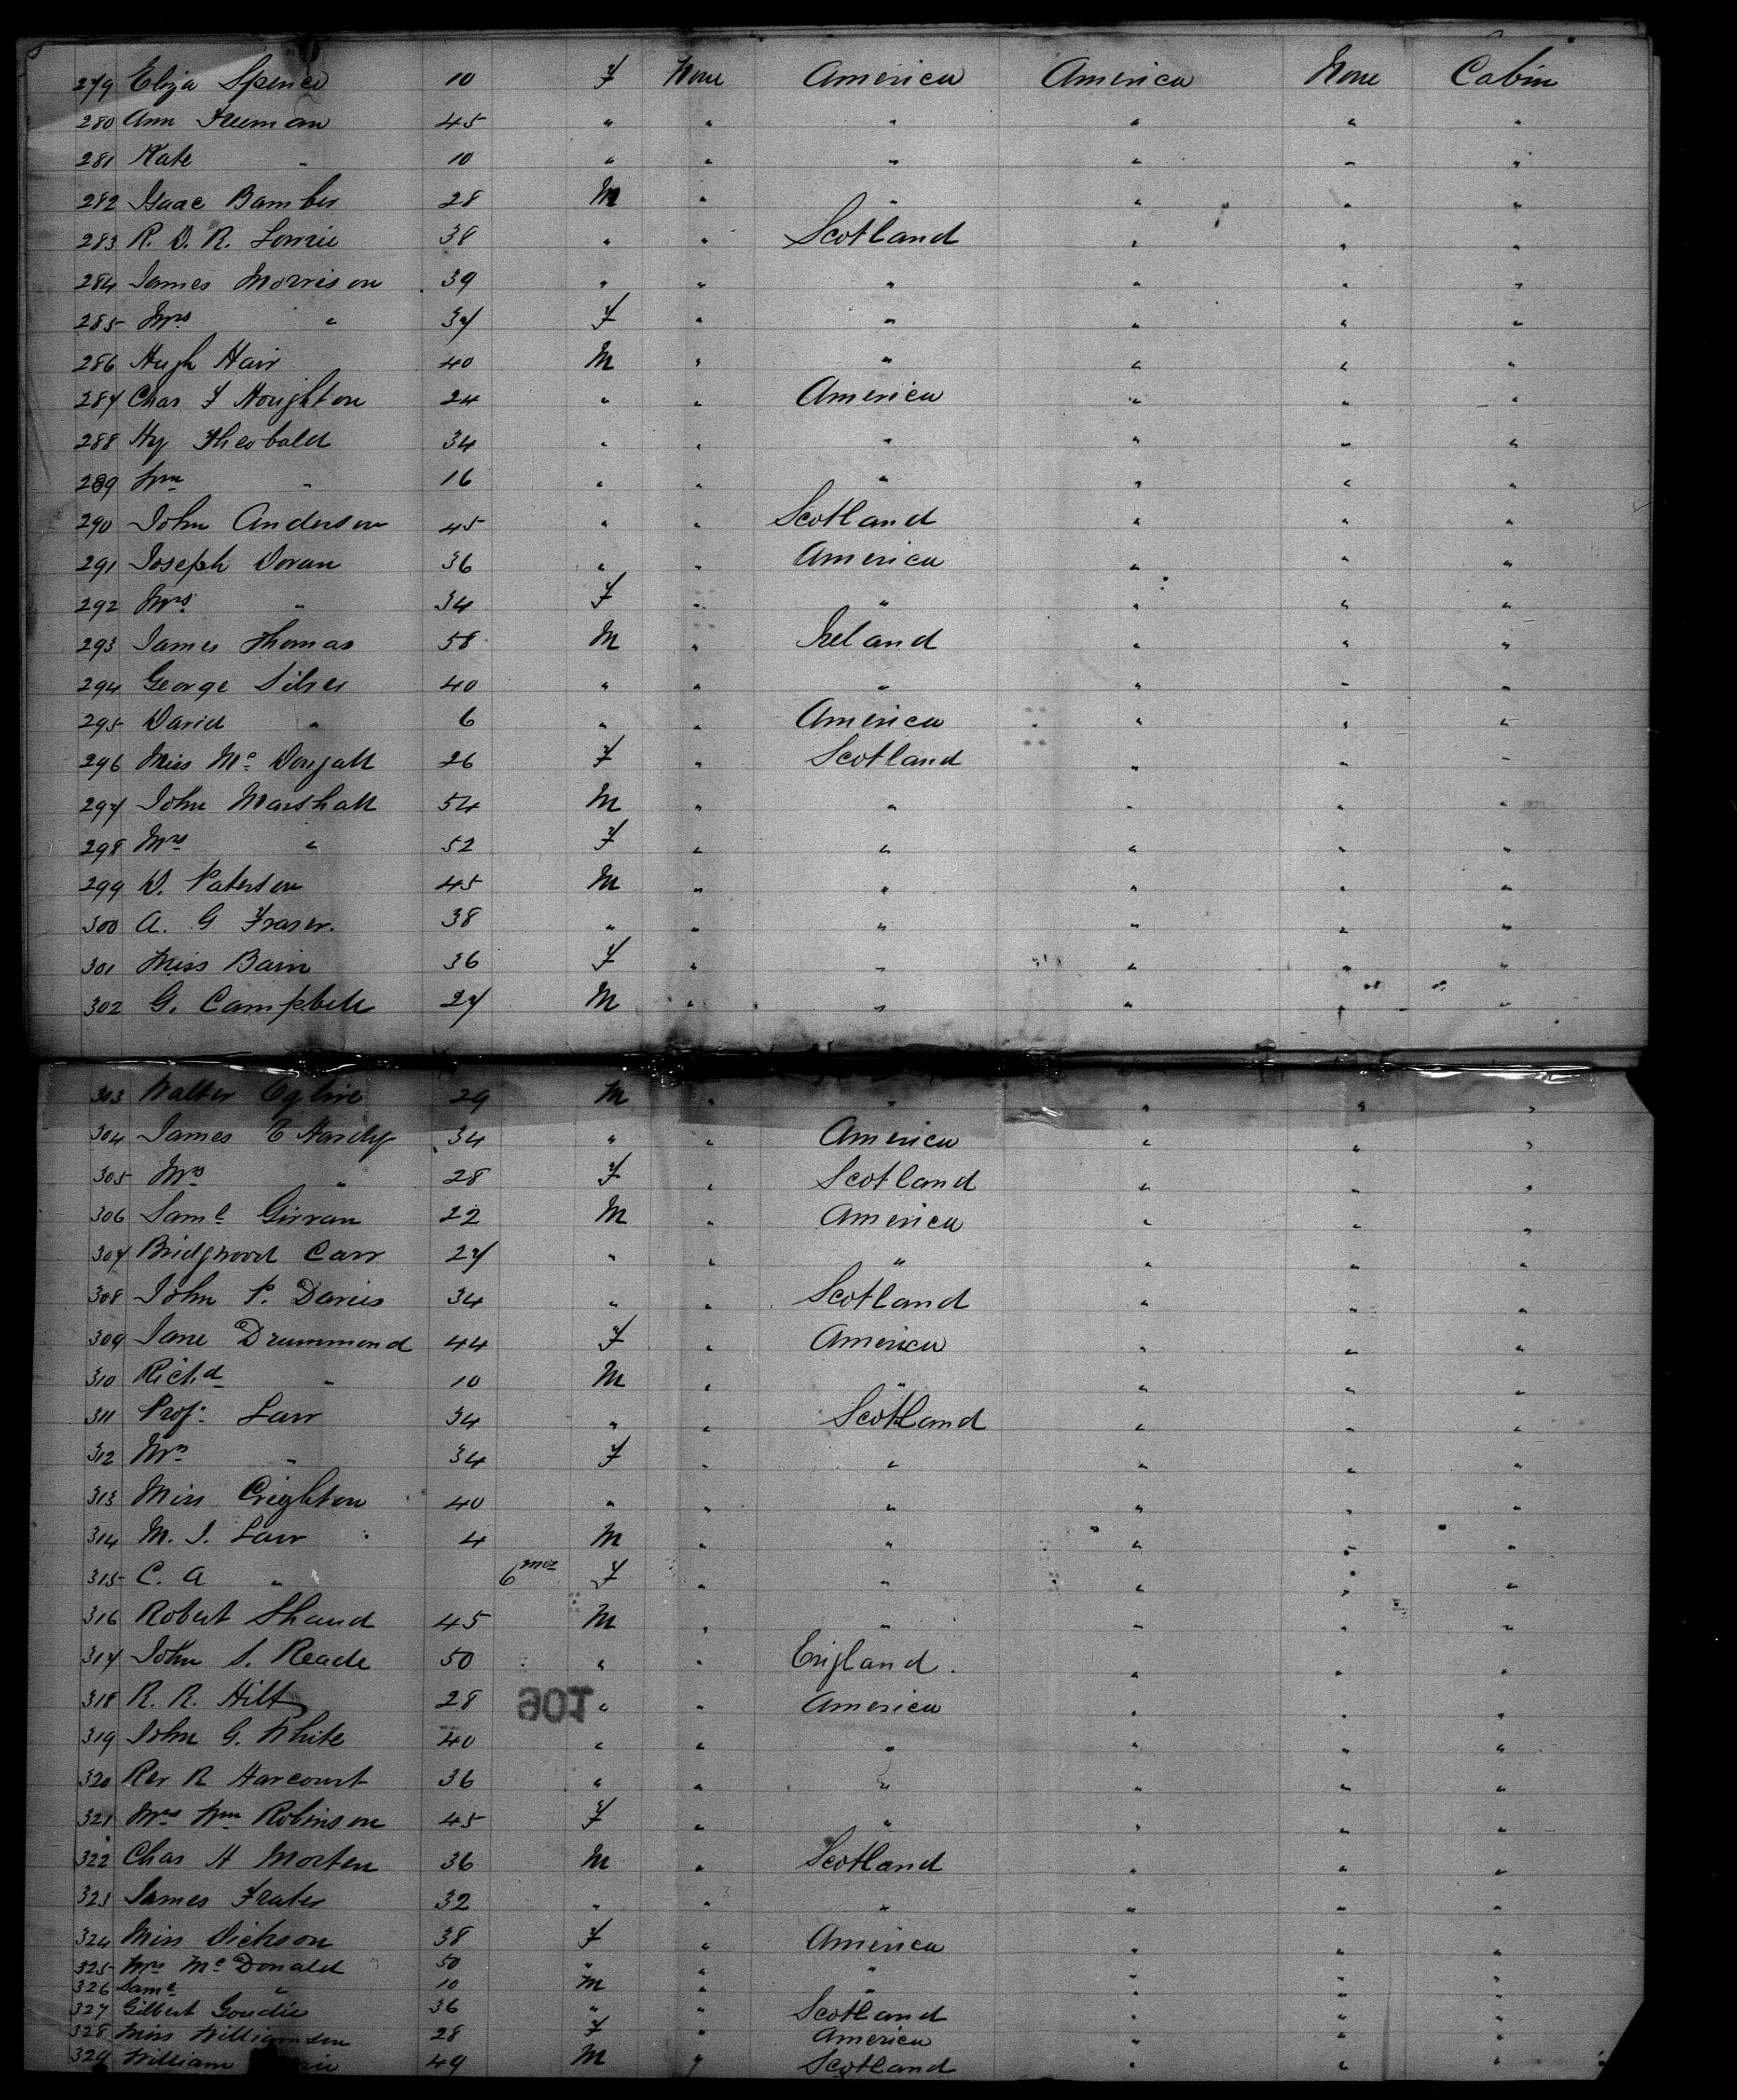 279 Eliza Spence 10 F None America America None Cabin
280 Ann Freeman 45 " " " " " "
281 Kate " 10 " " " " " "
282 Isaac Bamber 28 M " " " " "
283 R. D. R. Lowrie 38 " " Scotland " " "
284 James Morrison 39 " " " " " "
285 Mrs " 37 F " " " " "
286 Hugh Hair 40 M " " " " "
287 Chas F Houghton 24 " " America " " "
288 Hy Theobald 34 " " " " " "
289 Wm " 16 " " " " " "
290 John Anderson 45 " " Scotland " " "
291 Joseph Doran 36 " " America " " "
292 Mrs " 34 F " " " " "
293 James Thomas 58 M " Ireland " " "
294 George Silver 40 " " " " " "
295 David " 6 " " America " " "
296 Miss Mc Dougall 26 F " Scotland " " "
297 John Marshall 54 M " " " " "
298 Mrs " 52 F " " " " "
299 D. Paterson 45 M " " " " "
300 A. G Fraser. 38 " " " " " "
301 Miss Bain 36 F " " " " "
302 G. Campbell 27 M " " " " "
303 Walter Ogilvie 29 M " " " " "
304 James E Hardy 34 " " America " " "
305 Mrs " 28 F " Scotland " " "
306 Saml Girvan 22 M " America " " "
307 Bridgwood Carr 27 " " " " " "
308 John P. Davies 34 " " Scotland " " "
309 Jane Drummond 44 F " America " " "
310 Richd " 10 M " " " " "
311 Prof. Law 34 " " Scotland " " "
312 Mrs " 34 F " " " " "
313 Miss Crighton 40 " " " " " "
314 M. J. Law 4 M " " " " "
315 C. A " 6 mos F " " " " "
316 Robert Shand 45 M " " " " "
317 John S. Reade 50 " " England. " " "
318 R. R. Hilt 28 " " America " " "
106
319 John G. White 40 " " " " " "
320 Rev R Harcourt 36 " " " " " "
321 Mrs Wm Robinson 45 F " " " " "
322 Chas H Morten 36 M " Scotland " " "
323 James Frater 32 " " " " " "
324 Miss Dickson 38 F " America " " "
325 Mrs Mc Donald 50 " " " " " "
326 Saml " 10 M " " " " "
327 Gilbert Goudie 36 " " Scotland " " "
328 Miss Williamson 28 F " America " " "
329 William 49 M " Scotland " " "